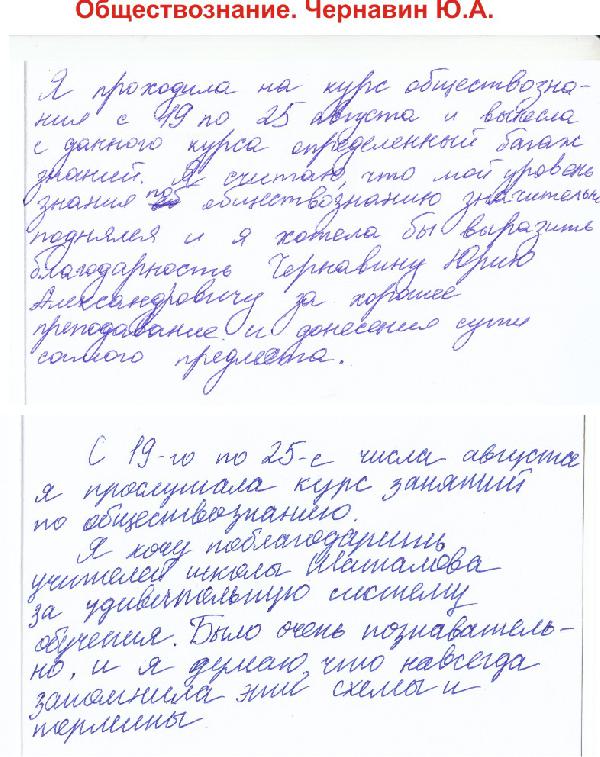 Обществознание. Чернавин Ю.А.
Я проходила на курс обществозна-
ния с 19 по 25 августа и вынесла
с данного курса определенный багаж
знаний. Я считаю, что мой уровень
знания по обществознанию значительно
поднялся и я хотела бы выразить
благодарность Чернавину Юрию
Александровичу за хорошее
преподавание и донесения сути
самого предмета.
С 19-го по 25-е числа августа
я прослушала курс занятий
по обществознанию.
Я хочу поблагодарить
учителей школы Шаталова
за удивительную систему
обучения. Было очень познаватель-
но, и я думаю что навсегда
запомнила эти схемы и
термины